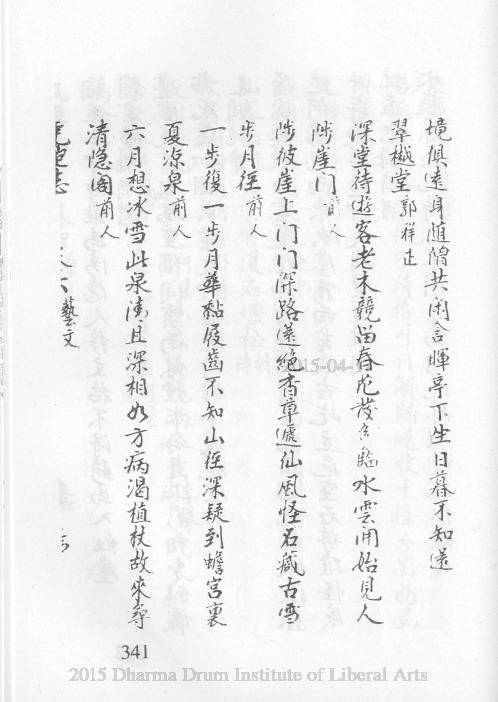 境俱遠身随淌共闲含暉亭下坐日暮不知還
翠樾堂 郭祥正
深堂待遊客老木競留春花發言臨水雲開始見人
陟崖门 前人
陟彼崖上门门深路還絶香草遞仙風怪石藏古雪
步月徑 前人
一步復一步月華黏屐齒不知山徑深疑到蟾宮裏
夏凉泉 前人
六月想冰雪此泉清且深相如方病渴植杖故來尋
清隐阁 前人
志 藝文
341
2015-04-
2015 Dharma Drum Institute of Liberal Arts